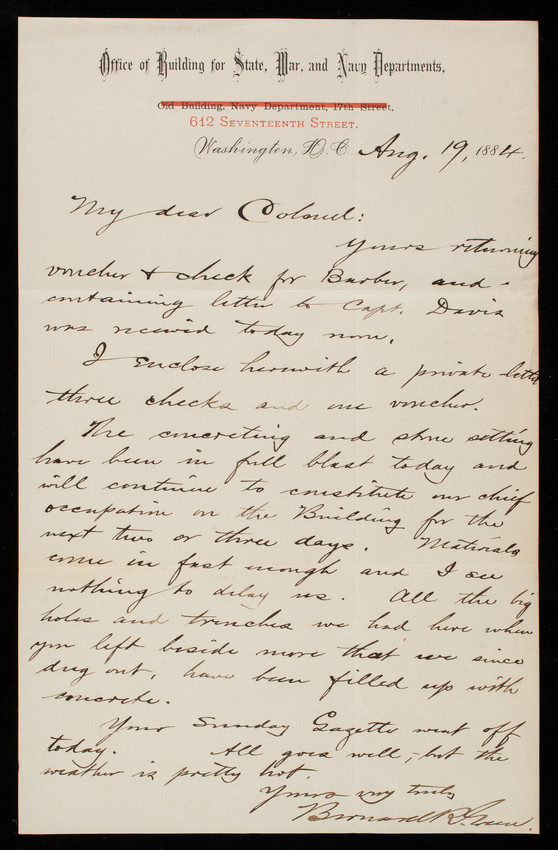 Office of Building for State, War, and Navy Departments,
Old Building, Navy Department, 17th Street,
612 Seventeenth Street.
Washington, D.C. Aug. 19, 1884.
My dear Colonel:
Yours returning
voucher & check for Barber, and
containing letter to Capt. Davis
was received today noon.
I enclose herewith a private letter
three checks and one voucher.
The concreting and stone setting
have been in full blast today and
will continue to constitute our chief
occupation on the Building for the
next two or three days. Materials
come in fast enough and I see
nothing to delay us. All the big
holes and trenches we had here when
you left beside more that we since
dug out, have been filled up with
concrete.
Your Sunday Gazette went off
today. All goes well, but the
weather is pretty hot.
Yours very truly
Bernard R. Green.